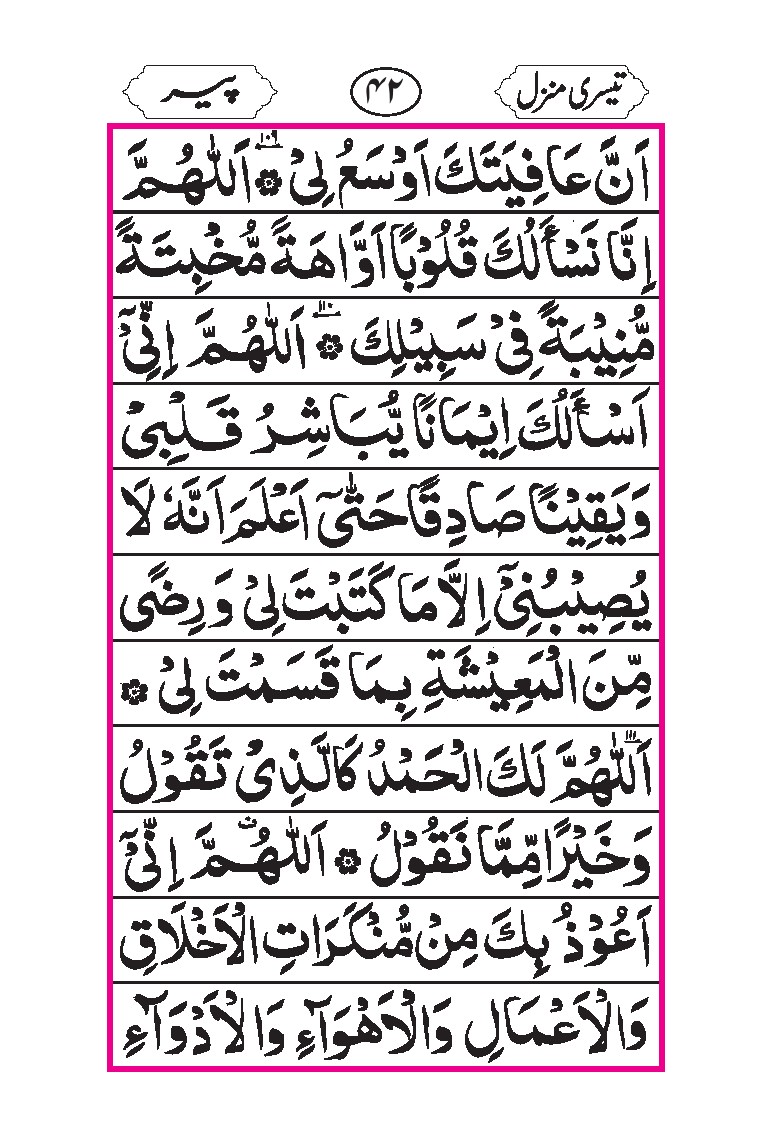 تیسری منزل ۴۲ پیر
اَنَّ عَافِيَتَكَ اَوْسَعُ لِیْ ۞ ۱۰۹ اَللّٰهُمَّ
اِنَّا نَسْأَلُكَ قُلُوْبًا اَوَّاهَةً مُّخْبِتَةً
مُّنِيْبَةً فِیْ سَبِيْلِكَ ۞ ۱۱۰ اَللّٰهُمَّ اِنِّیْٓ
اَسْأَلُكَ اِيْمَانًا يُّبَاشِرُ قَلْبِیْ
وَيَقِيْنًا صَادِقًا حَتّٰیٓ اَعْلَمَ اَنَّهٗ لَا
يُصِيْبُنِیْٓ اِلَّا مَا كَتَبْتَ لِیْ وَرِضًی
مِّنَ الْمَعِيْشَةِ بِمَا قَسَمْتَ لِیْ ۞
۱۱۱ اَللّٰهُمَّ لَكَ الْحَمْدُ كَالَّذِیْ تَقُوْلُ
وَخَيْرًا مِّمَّا نَقُوْلُ ۞ اَللّٰهُمَّ اِنِّیْٓ
اَعُوْذُ بِكَ مِنْ مُّنْكَرَاتِ الْاَخْلَاقِ
وَالْاَعْمَالِ وَالْاَهْوَآءِ وَالْاَدْوَآءِ